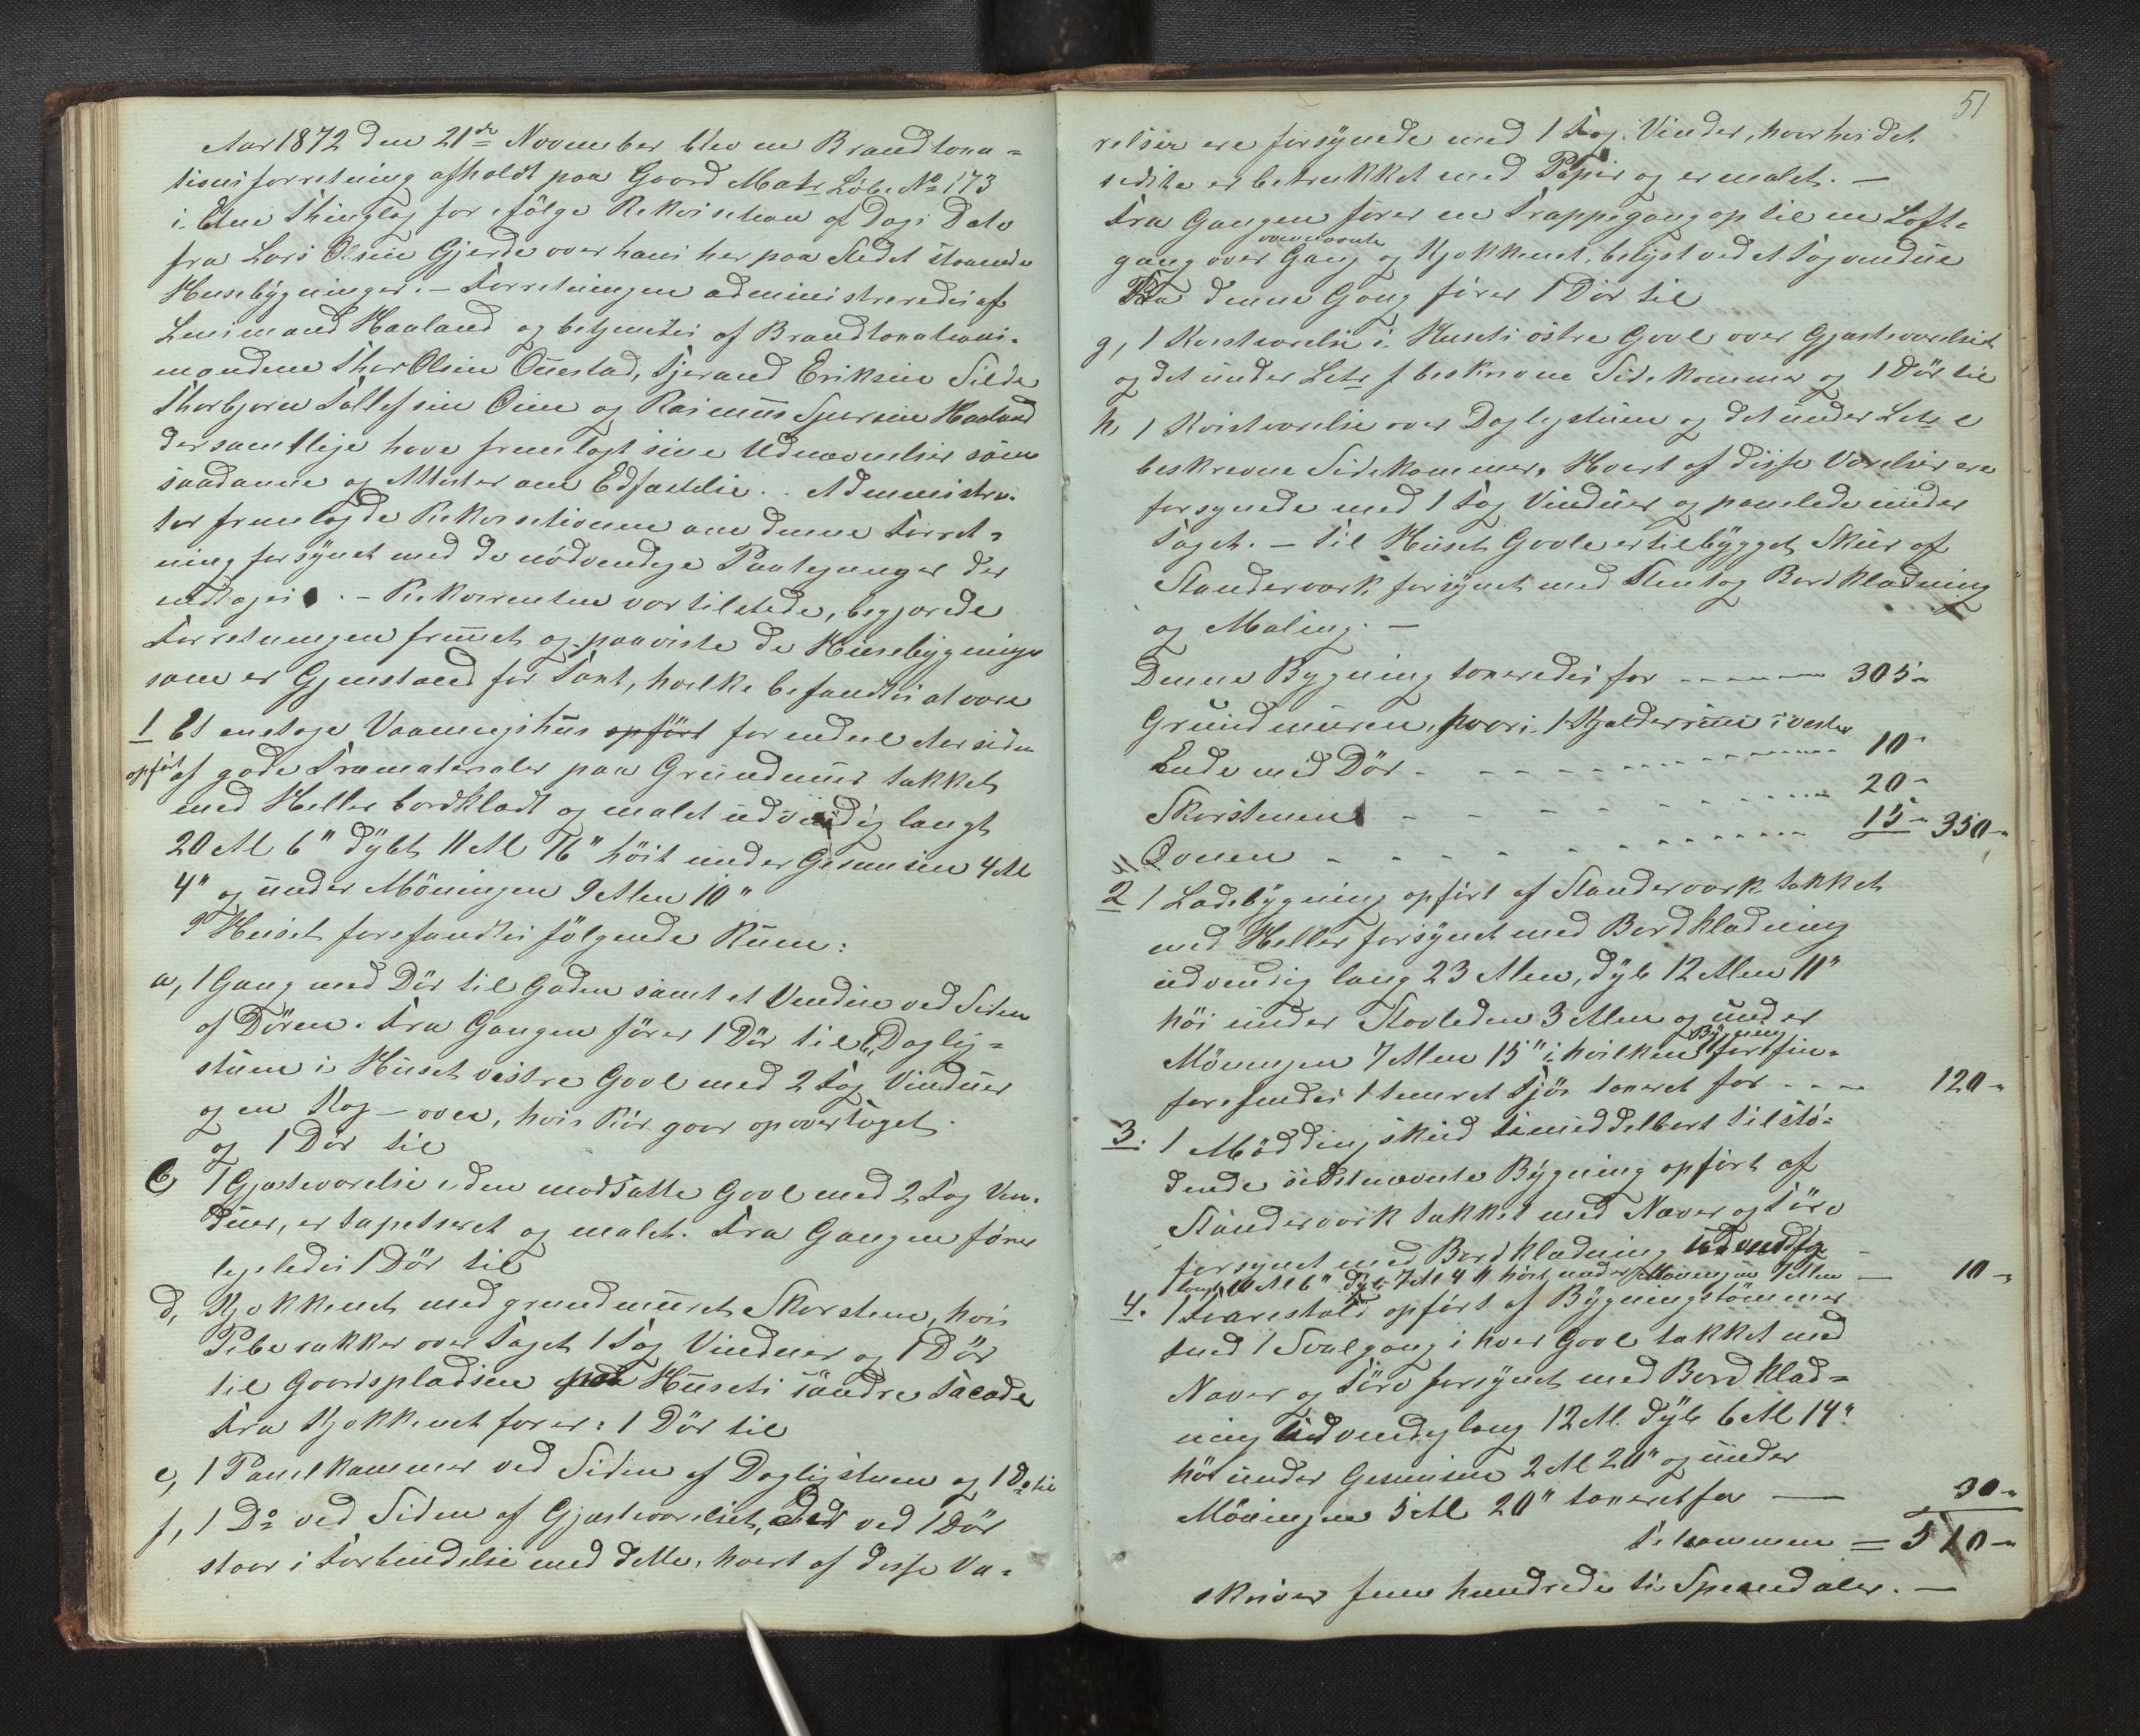 Aar 1872 den 21de November blev en Brandtaxa=
tionsforretning afholdt paa Gaard Matr Löbe No 173
i Etne Thinglag for ifölge Rekvisition af Dags Dato
fra Lars Olsen Gjerde over hans her paa Stedet staaende
Husebygninger. – Forretningen administreredes af
Lensmand Haaland og betjentes af Brandtaxations-
mændene Thor Olsen Ouestad, Tjerand Eriksen Silde
Thorbjørn Tollefsen Oine og Rasmus Sjursen Haaland
der samtlige have fremlagt sine Udnævnelser som
saadanne og Attester om Edfæstelse. . Administra-
tor fremlagde Rekvisitionen om denne Forret-
ning forsynet med de nödvendige Paategninger der
indtages . – Rekvirenten var tilstede, begjærede
Forretningen fremmet og paaviste de Husebygninger
som er Gjenstand for Taxt, hvilke befandtes at være
1 Et enetages Vaaningshus opfört for endeel Aar siden
opfört af gode Træmaterialer paa Grundmur takket
med Heller bordklædt og malet udvendig langt
20 Al 6" dybt 11 Al 16" höit under Gesimsen 4 Al
4" og under Möningen 9 Alen 10"
I Huset forefandtes fölgende Rum:
a, 1 Gang med Dör til Gaden samt et Vindue ved Siden
af Dören. Fra Gangen förer 1 Dör til b, Daglig=
stuen i Huset vestre Gavl med 2 Fag Vinduer
og en Kog-oven, hvis Rör gaar op over Taget.
og 1 Dör til
c, 1 Gjesteværelse i den modsatte Gavl med 2 Fag Vin-
duer, er tapetseret og malet. Fra Gangen förer
ligeledes 1 Dör til
d, Kjøkkenet med grundmuret Skorsten, hvis
Pibe rækker over Taget 1 Fag Vinduer og 1 Dör
til Gaardspladsen paa Husets söndre Facade
Fra Kjøkkenet fører: 1 Dör til
e, 1 Panelkammer ved Siden af Dagligstuen og 1 Do til
f, 1 Do ved Siden af Gjæsteværelset, der ved 1 Dör
staar i Forbindelse med dette, hvert af disse Væ-
51
relser ere forsynede med 1 Fag Vinder, hvorhos det
sidste er betrukket med Papir og er malet. –
Fra Gangen fører en Trappegang op til en Loft-
gang over ovennævnte Gang og Kjøkkenet, belyst ved et Fag vindue
Fra denne Gang fører 1 Dör til
g, 1 Kvistværelse i Husets östre Gavl over Gjæsteværelset
og det under Litr f beskrevne Sidekammer og 1 Dör til
h, 1 Kvistværelse over Dagligstuen og det under Litr e
beskrevne Sidekammer. Hvert af disse Værelser ere
forsynede med 1 Fag Vinduer og panelede under
Taget. – Til Huset Gavle er tilbygget Skur af
Standerværk forsynet med Stentag Bordklædning
og Maling. –
Denne Bygning taxeredes for - - - - - 305 "
Grundmuren, hvori 1 Kjælderrum i vestre
Ende med Dör - - - - - - - 10 "
Skorstenen - - - - - - - 20 "
Ovnen - - - - - - - 15 " 350 "
2 1 Ladebygning opfört af Standerværk takket
med Heller forsynet med Bordklædning
udvendig lang 23 Alen, dyb 12 Alen 11"
höi under Stavleden 3 Alen og under
Möningen 7 Alen 15" i hvilken Bygning forefin-
forefindes 1 tömret Fjös taxeret for - - - 120 "
3. 1 Möddingskud umiddelbart tilstö-
dende sidstnævnte Bygning opfört af
Standerværk takket med Næver og Törv
forsynet med Bordklædning udvendig –
langt 10 Al 6" dyb 7 Al 4" höit under Möningen 7 Alen — 10 "
4. 1 Faarestald opfört af Bygningstömmer
med 1 Svalgang i hver Gavl takket med
Næver og Törv forsynet med Bordklæd-
ning udvendig lang 12 Al. dyb 6 Al 14"
höi under Gesimsen 2 Al 20" og under
Möningen 5 Al 20" taxeret for — 30 "
Tilsammen = 510 "
skriver fem hundrede ti Speciedaler. –